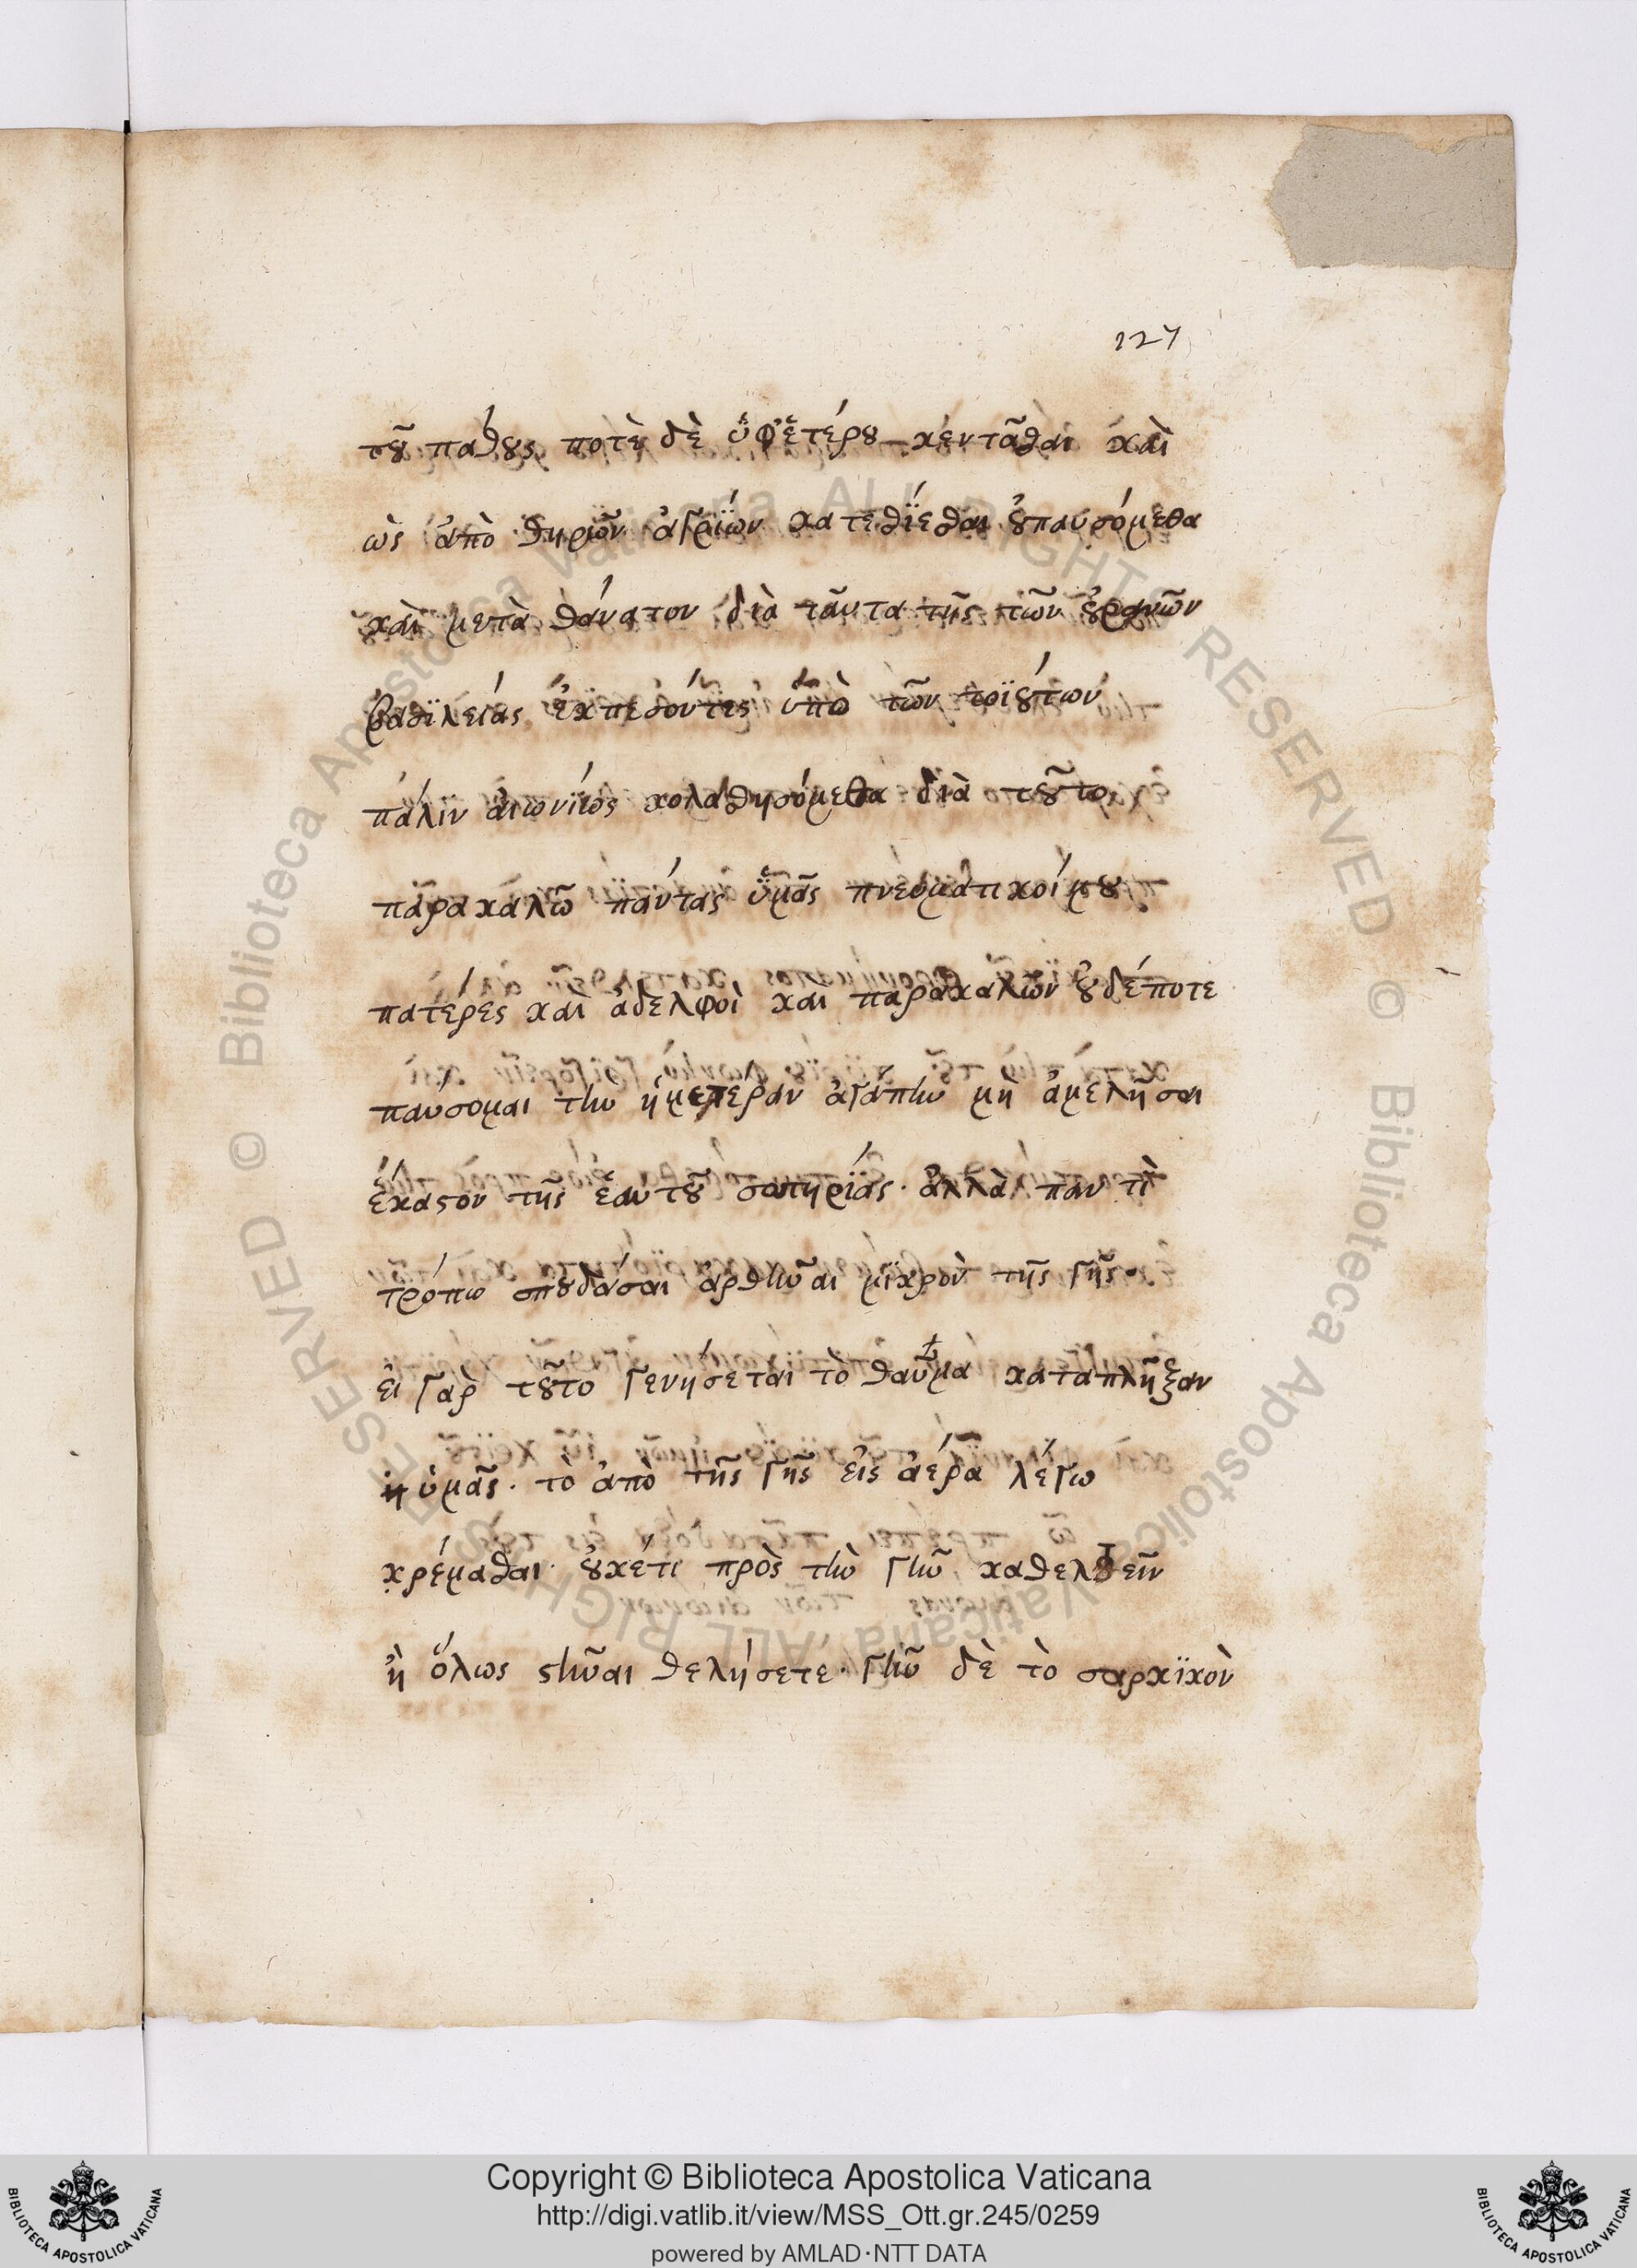 127
τοῦ πάθους ποτὲ δὲ ὑφ' ἑτέρου κεντᾶσθαι καὶ
ὡς ἀπὸ θηρίων ἀγρίων κατεσθίεσθαι οὐ παυσόμεθα
καὶ μετὰ θάνατον διὰ ταῦτα τῆς τῶν οὐρανῶν
βασϊλείας ἐκπεσόντες ὑπὸ τῶν τοϊούτων
πάλϊν αἰωνϊίως κολασθησόμεθα διὰ τοῦτο
παρακαλῶ πάντας ὑμᾶς πνευματικοί μου
πατέρες καὶ ἀδελφοὶ καὶ παρακαλῶν οὐδέποτε
παύσομαι τὴν ἡμετέραν ἀγάπην μὴ ἀμελῆσαι
ἕκαστον τῆς ἑαυτοῦ σωτηρϊάς · ἀλλὰ παν τὶ
τρόπω σπουδάσαι ἀρθῆναι μϊκρὸν τῆς γῆς ·
εἰ γὰρ τοῦτο γενήσεται τὸ θαῦμα καταπλῆξαν
ἡ ὑμᾶς · τὸ ἀπὸ τῆς γῆς εἰς ἀέρα λέγω
κρέμασθαι · οὐκέτι πρὸς τὴν γῆν κατελθεῖν
ἢ ὅλως στῆναι θελήσετε · γῆν δὲ τὸ σαρκϊκὸν
© Biblioteca Apostolica Vaticana ALL RIGHTS RESERVED © Biblioteca Apostolica Vaticana ALL RIGHTS RESERVED
BIBLIOTECA APOSTOLICA VATICANA
Copyright © Biblioteca Apostolica Vaticana
http://digi.vatlib.it/view/MSS_Ott.gr.245/0259
powered by AMLAD·NTT DATA
BIBLIOTECA APOSTOLICA VATICANA